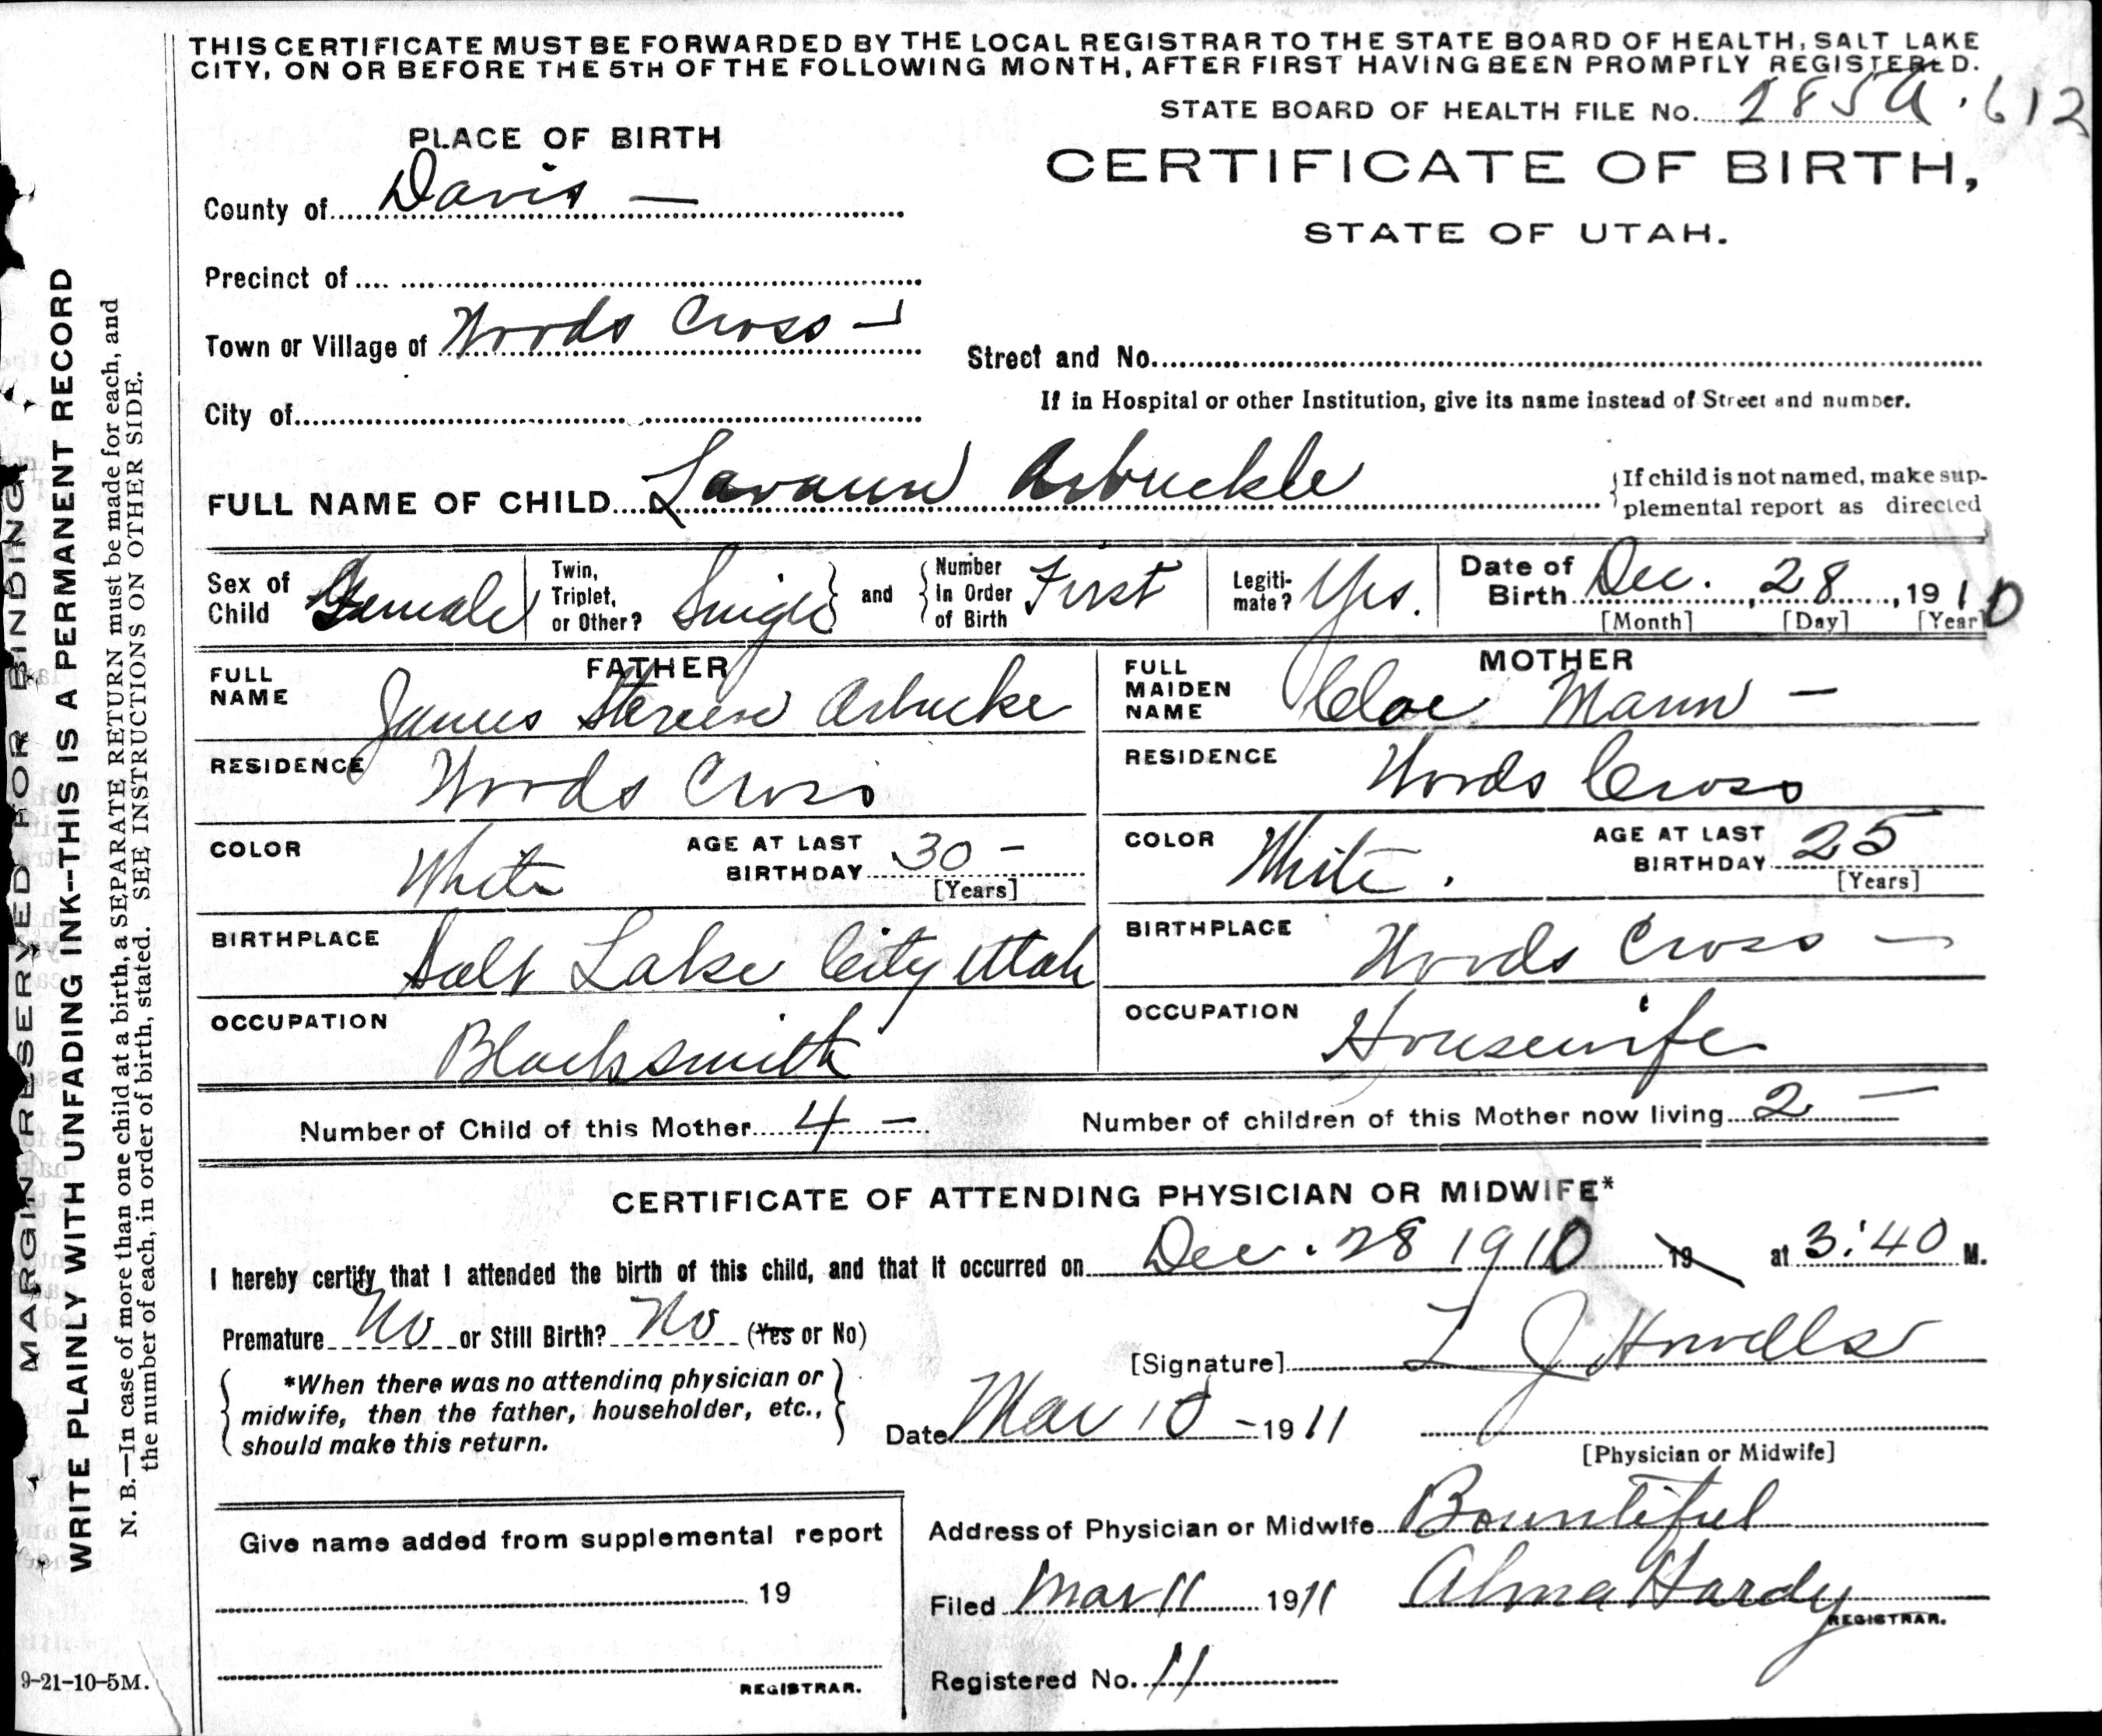 THIS CERTIFICATE MUST BE FORWARDED BY THE LOCAL REGISTRAR TO THE STATE BOARD OF HEALTH, SALT LAKE
CITY, ON OR BEFORE THE 5TH OF THE FOLLOWING MONTH, AFTER FIRST HAVING BEEN PROMPTLY REGISTERED.
STATE BOARD OF HEALTH FILE No. 185a.612
PLACE OF BIRTH
CERTIFICATE OF BIRTH,
STATE OF UTAH.
County of Davis —
Precinct of
Town or Village of Woods Cross
Street and No.
If in Hospital or other Institution, give its name instead of Street and number.
City of
FULL NAME OF CHILD Lavaun Arbuckle
{If child is not named, make sup-
plemental report as directed
Sex of Child Female
Twin, Triplet, or Other? Single
and
Number in Order of Birth First
Legiti-mate? Yes.
Date of Birth Dec. 28, 1910
[Month] [Day] [Year]
FATHER
FULL NAME James Arbucke
RESIDENCE Woods Cross
COLOR White
AGE AT LAST BIRTHDAY 30 —
[Years]
BIRTHPLACE Salt Lake City Utah
OCCUPATION Blacksmith
MOTHER
FULL MAIDEN NAME Cloe Mann —
RESIDENCE Woods Cross
COLOR White.
AGE AT LAST BIRTHDAY 25
[Years]
BIRTHPLACE Woods Cross —
OCCUPATION Housewife
Number of Child of this Mother 4 —
Number of children of this Mother now living 2 —
CERTIFICATE OF ATTENDING PHYSICIAN OR MIDWIFE*
I hereby certify that I attended the birth of this child, and that it occurred on Dec. 28 1910 19 at 3:40 M.
Premature No or Still Birth? No (Yes or No)
[Signature] L J Howells
{*When there was no attending physician or
midwife, then the father, householder, etc.,
should make this return.}
Date Mar 10 – 1911
[Physician or Midwife]
Address of Physician or Midwife Bountiful
Filed Mar 11 1911 Alma Hardy
REGISTRAR.
Registered No. 11
Give name added from supplemental report
19
REGISTRAR.
9-21-10-5M.
MARGIN RESERVED FOR BINDING
WRITE PLAINLY WITH UNFADING INK--THIS IS A PERMANENT RECORD
N. B.—In case of more than one child at a birth, a SEPARATE RETURN must be made for each, and
the number of each, in order of birth, stated. SEE INSTRUCTIONS ON OTHER SIDE.